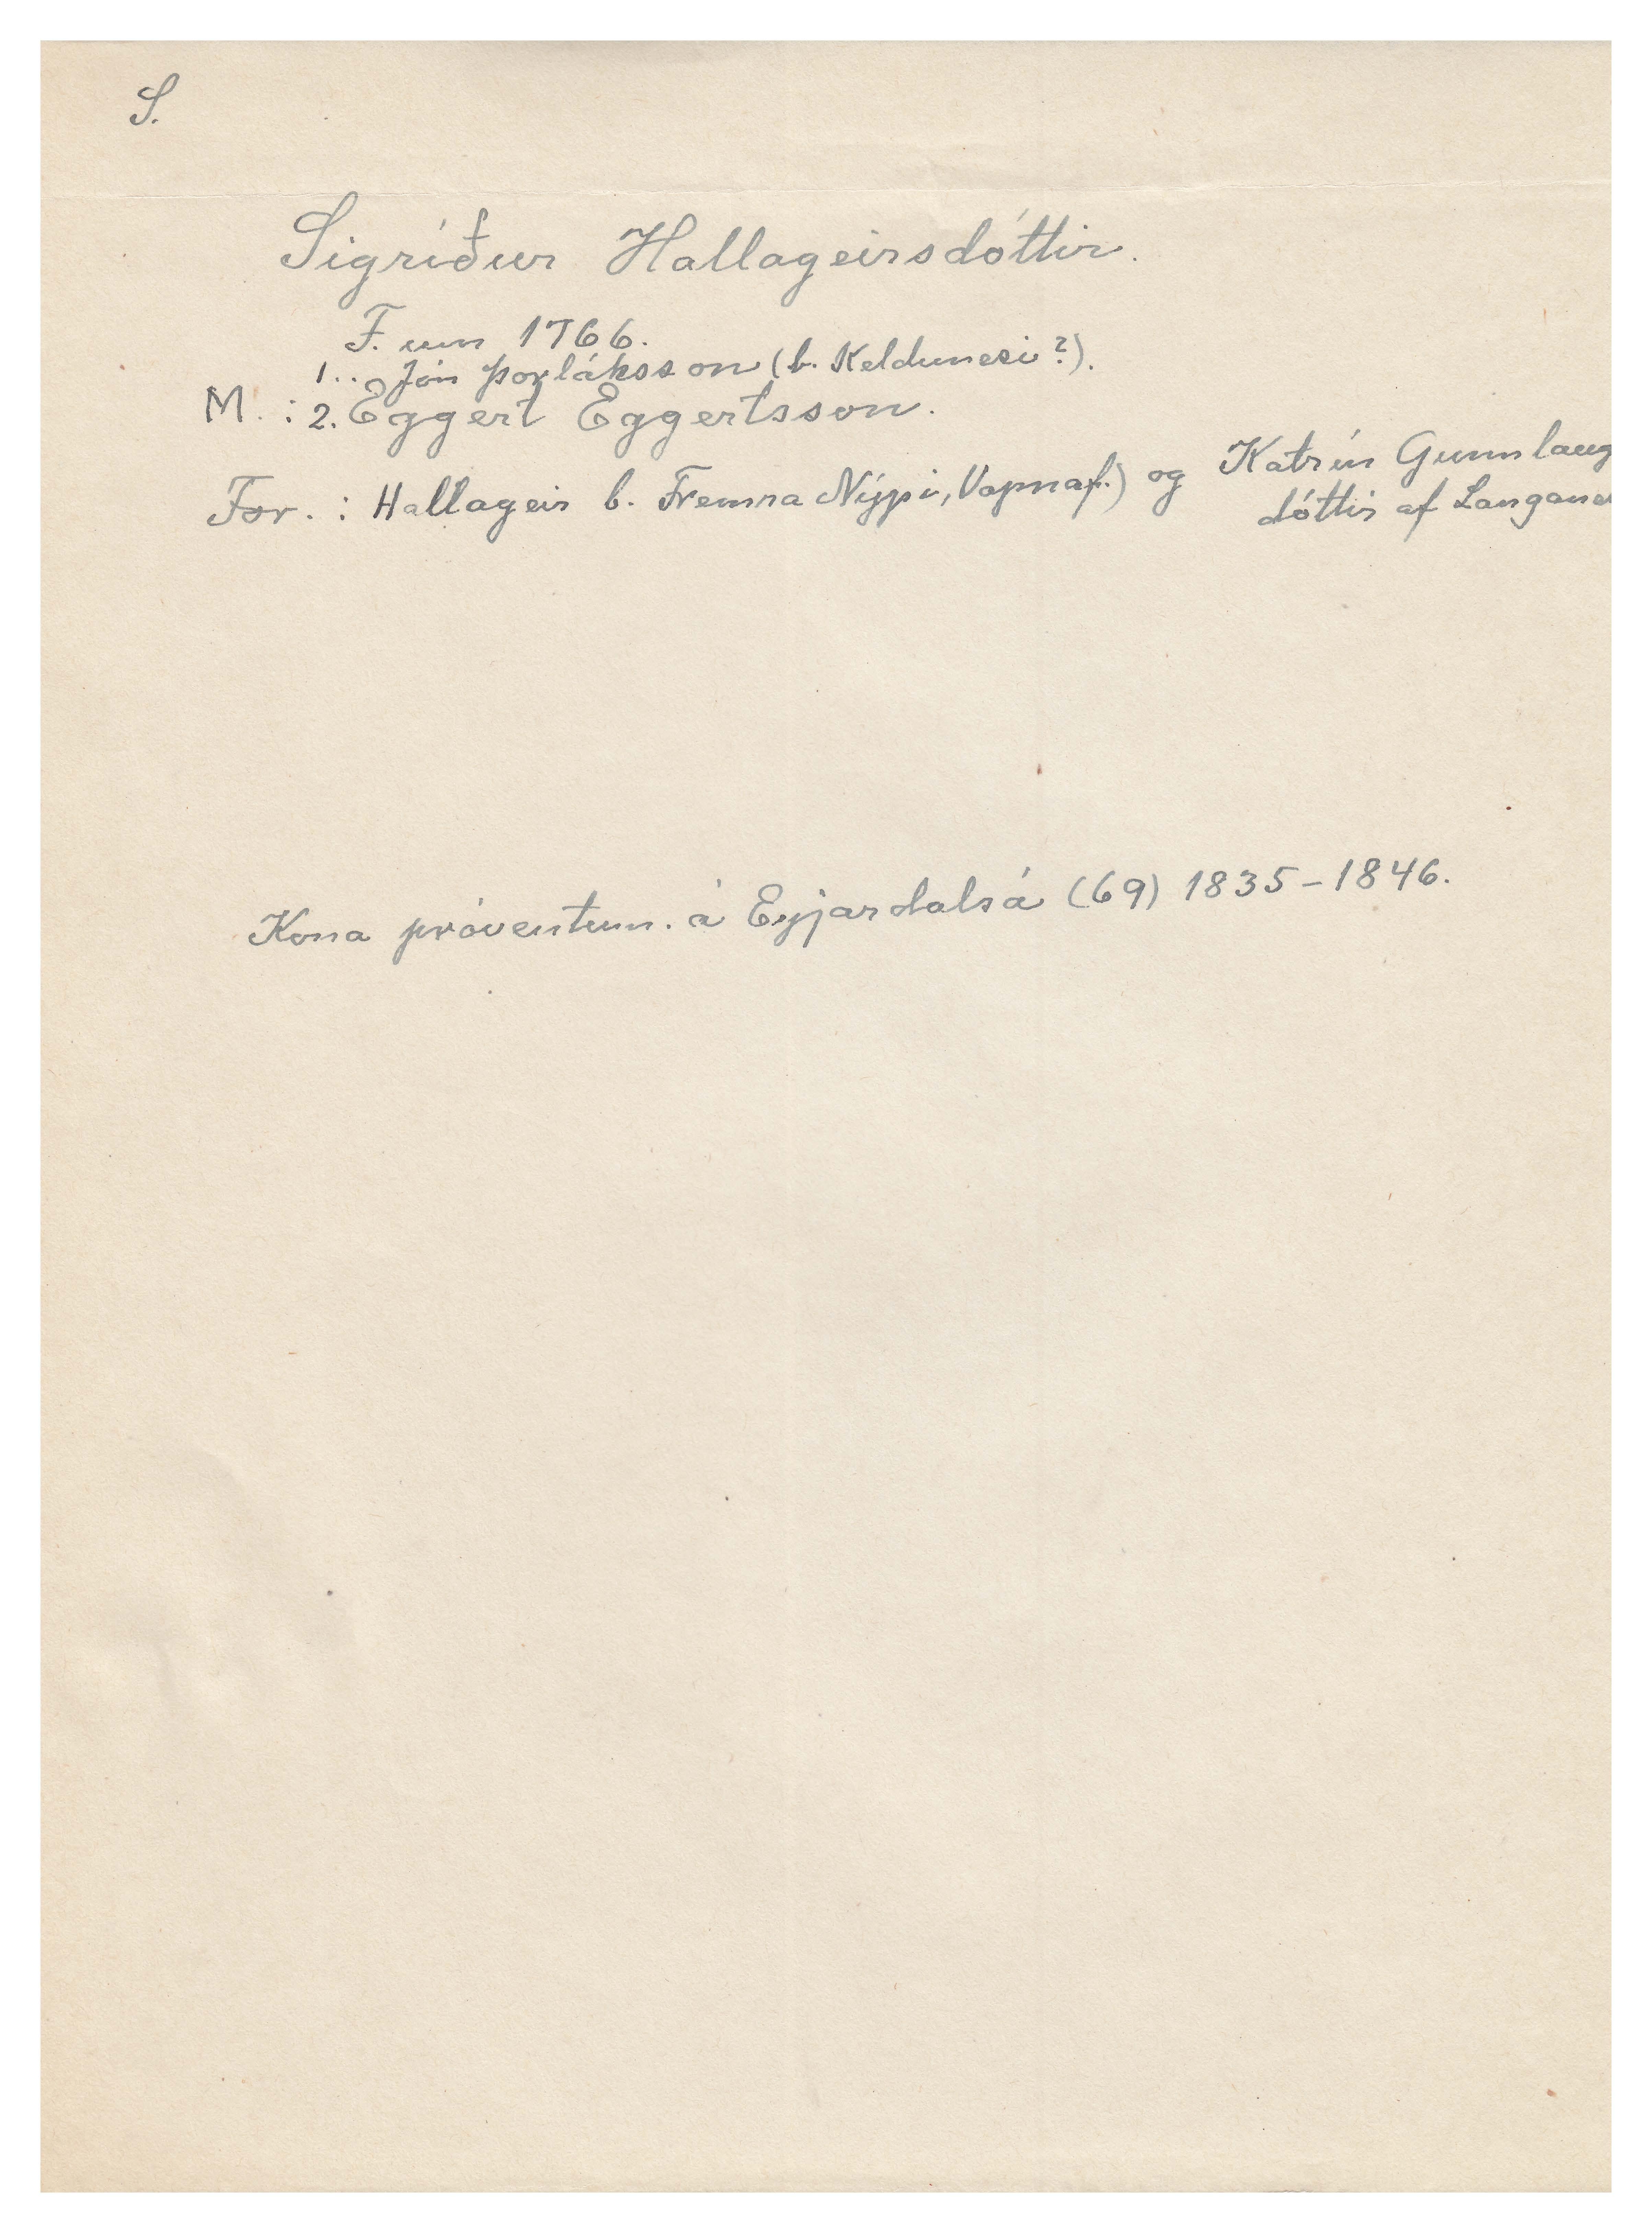 S.
Sigríður Hallageirsdóttir.
F. um 1766.
1.. Jón Þorláksson (b. Keldunesi?).
M. : 2. Eggert Eggertsson.
For. : Hallageir b. Fremra Nýpi, Vopnaf.) og Katrín Gunnlaug
dóttir af Langane
Kona próventum. á Eyjardalsá (69) 1835-1846.